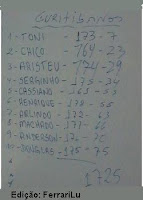 CURITIBANOS
1- TONI - 173 - 7
2- CAICO - 164 - 23
3- ARISTEU - 174 - 29
4- SERGINHO - 175 - 34
5- CASSIANO - 
6- HENRIQUE - 178 - 55
7- ARLINDO - 172 - 63
8- MACHADO - 177 - 66
9- ANDERSON - 176 -
10- DOUGLAS - 175 - 75
1725
Edição: FerrariLu